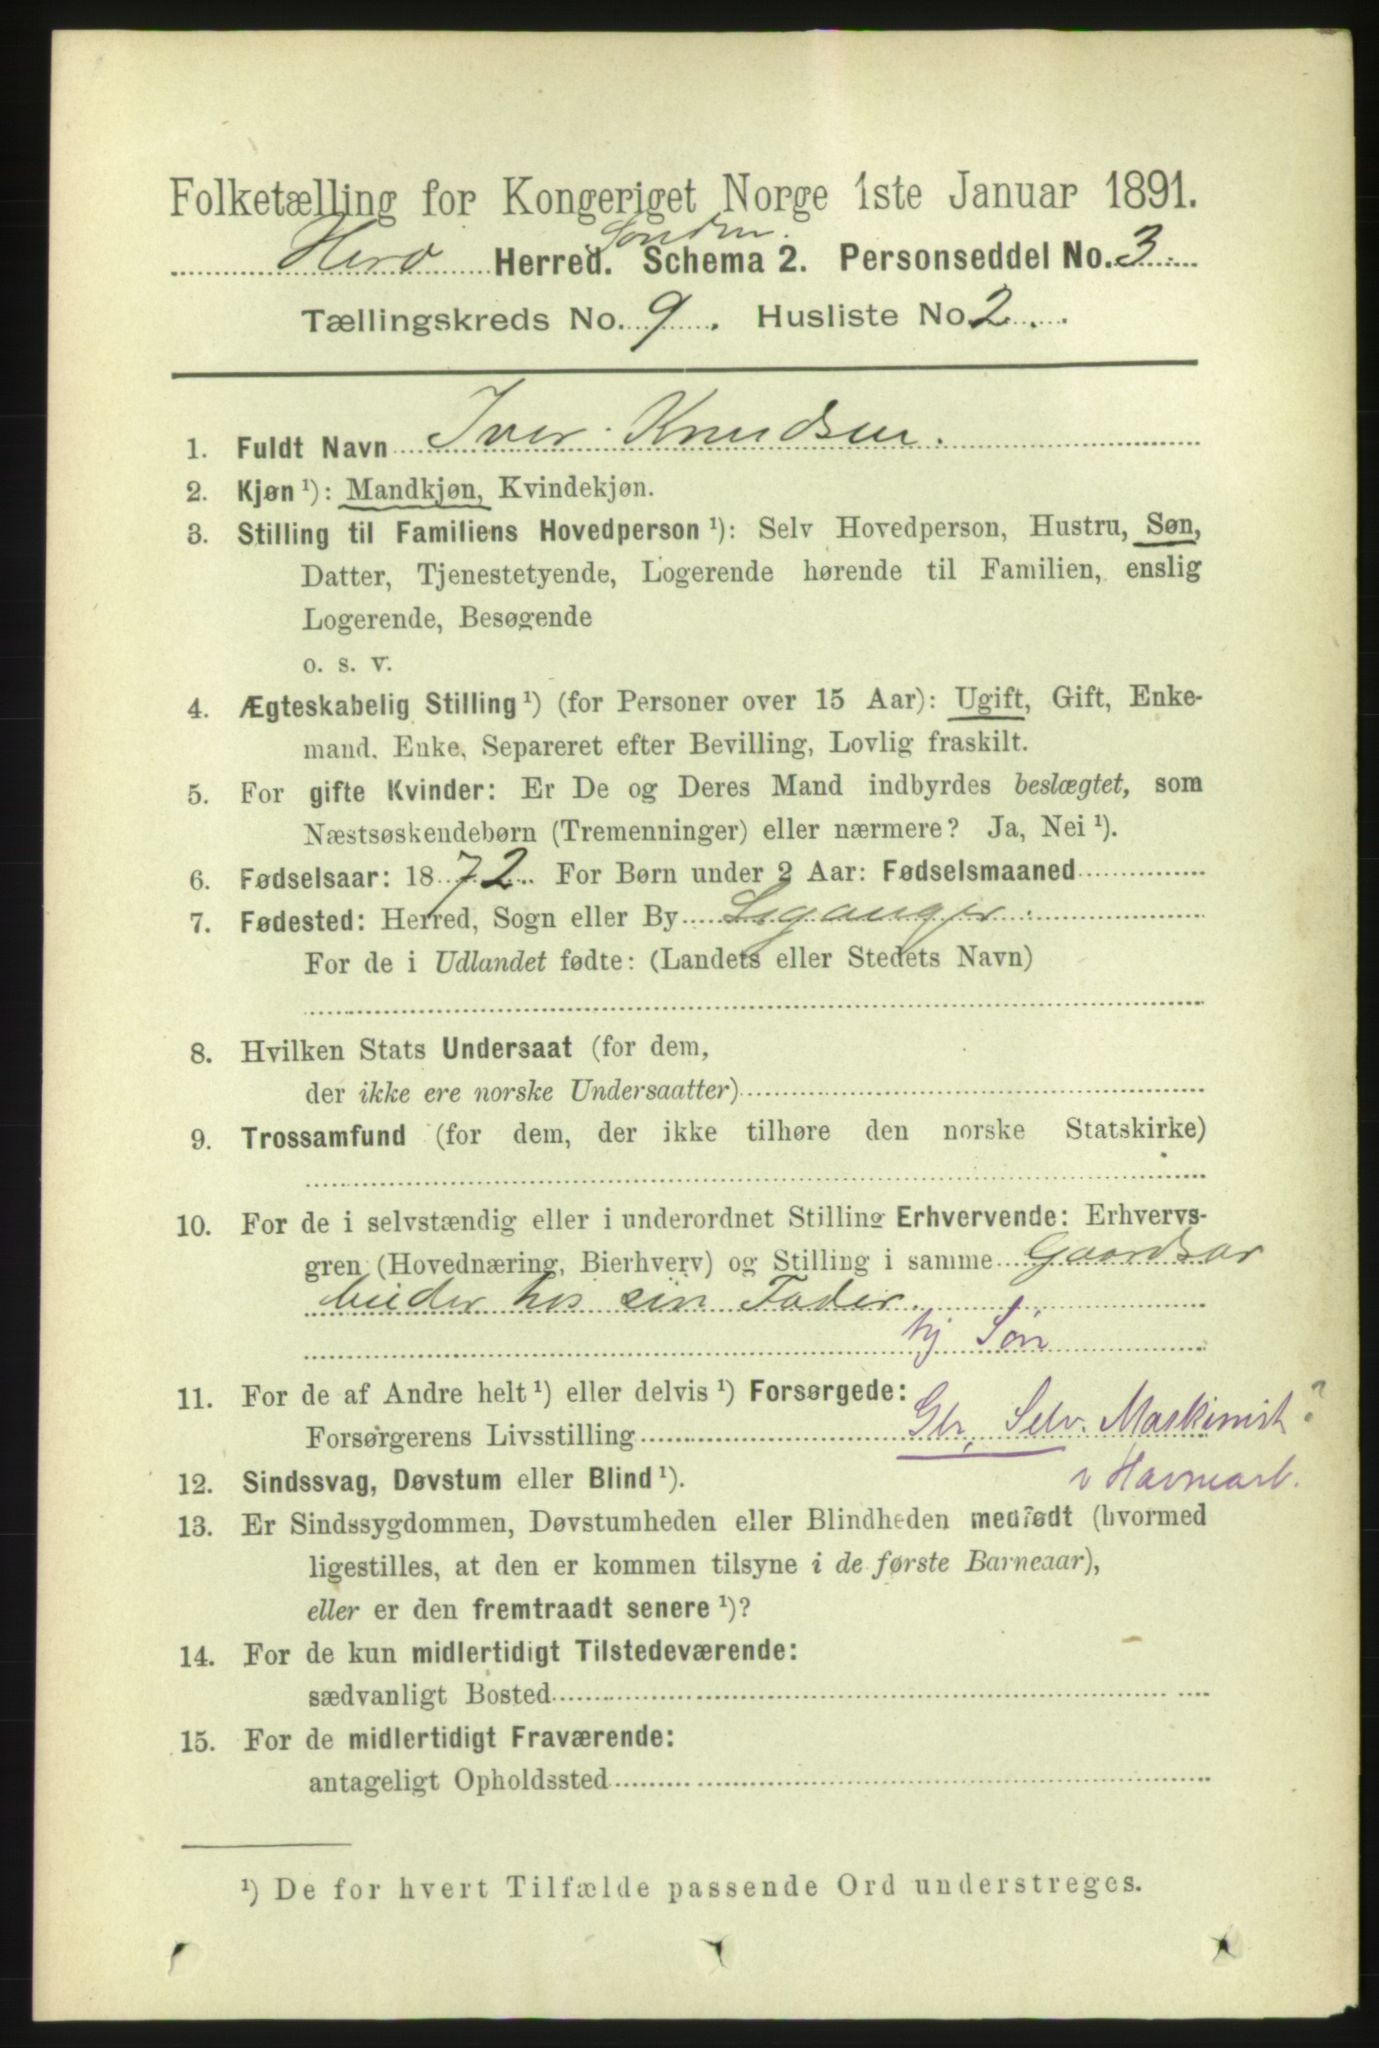 Folketælling for Kongeriget Norge 1ste Januar 1891.
Søndre
Herø Herred. Schema 2. Personseddel No. 3
Tællingskreds No. 9. Husliste No. 2.
1. Fuldt Navn Iver Knudsen.
2. Kjøn ¹): Mandkjøn, Kvindekjøn.
3. Stilling til Familiens Hovedperson ¹): Selv Hovedperson, Hustru, Søn,
Datter, Tjenestetyende, Logerende hørende til Familien, enslig
Logerende, Besøgende
o. s. v.
4. Ægteskabelig Stilling ¹) (for Personer over 15 Aar): Ugift, Gift, Enke-
mand, Enke, Separeret efter Bevilling, Lovlig fraskilt.
5. For gifte Kvinder: Er De og Deres Mand indbyrdes beslægtet, som
Næstsøskendebørn (Tremenninger) eller nærmere? Ja, Nei ¹).
6. Fødselsaar: 1872. For Børn under 2 Aar: Fødselsmaaned
7. Fødested: Herred, Sogn eller By Leganger.
For de i Udlandet fødte: (Landets eller Stedets Navn)
8. Hvilken Stats Undersaat (for dem,
der ikke ere norske Undersaatter)
9. Trossamfund (for dem, der ikke tilhøre den norske Statskirke)
10. For de i selvstændig eller i underordnet Stilling Erhvervende: Erhvervs-
gren (Hovednæring, Bierhverv) og Stilling i samme Gaardsar
beider hos sin Fader.
hj Søn
11. For de af Andre helt ¹) eller delvis ¹) Forsørgede:
Forsørgerens Livsstilling Gbr, Selv. Maskinist?
12. Sindssvag, Døvstum eller Blind ¹). v Havnearb.
13. Er Sindssygdommen, Døvstumheden eller Blindheden medfødt (hvormed
ligestilles, at den er kommen tilsyne i de første Barneaar),
eller er den fremtraadt senere ¹)?
14. For de kun midlertidigt Tilstedeværende:
sædvanligt Bosted
15. For de midlertidigt Fraværende:
antageligt Opholdssted
¹) De for hvert Tilfælde passende Ord understreges.